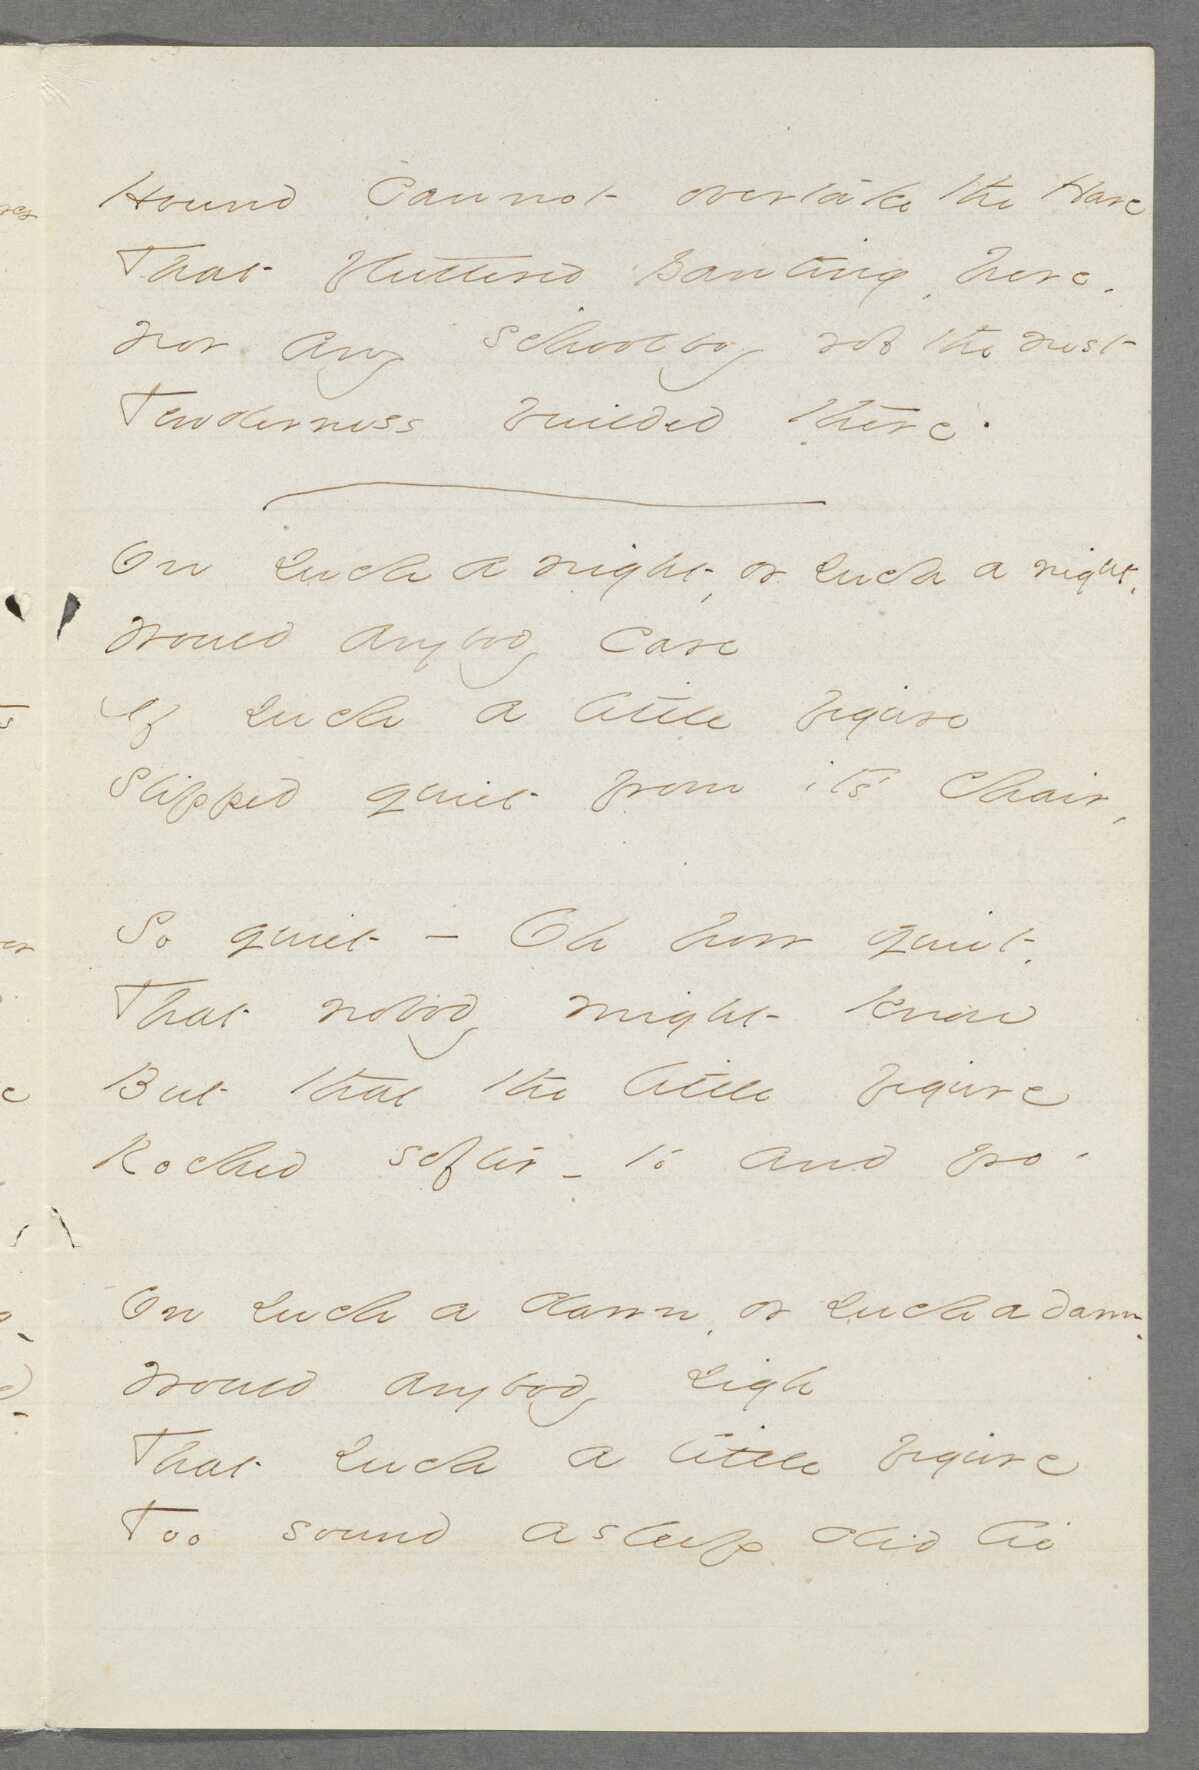 Hound cannot overtake the Hare
That fluttered panting, here,
Nor any schoolboy rob the nest
Tenderness builded there.
On such a night, or such a night,
Would anybody care
If such a little figure
Slipped quiet from its chair,
So quiet - Oh how quiet,
That nobody might know
But that the little figure
Rocked softer - to and fro -
On such a dawn, or such a dawn,
Would anybody sigh
That such a little figure
Too sound asleep did lie